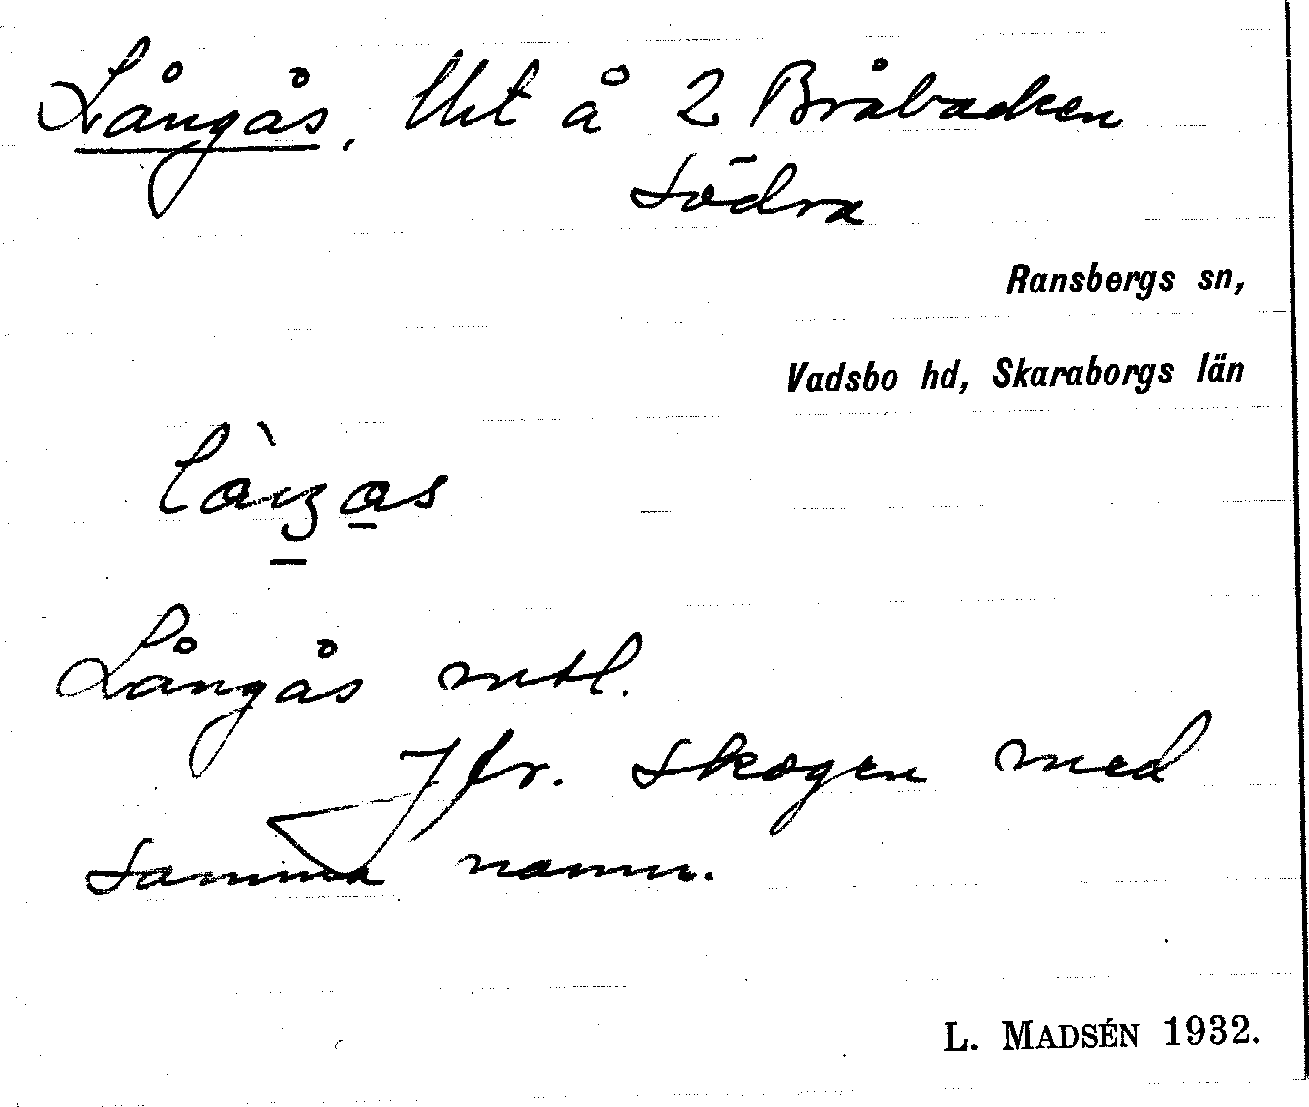 Långås, Uht å 2 Bråbacken
Södra
Ransbergs sn,
Vadsbo hd, Skaraborgs län
Långås mtl.
Jfr. skogen med
samma namn.
L. MADSÉN 1932.